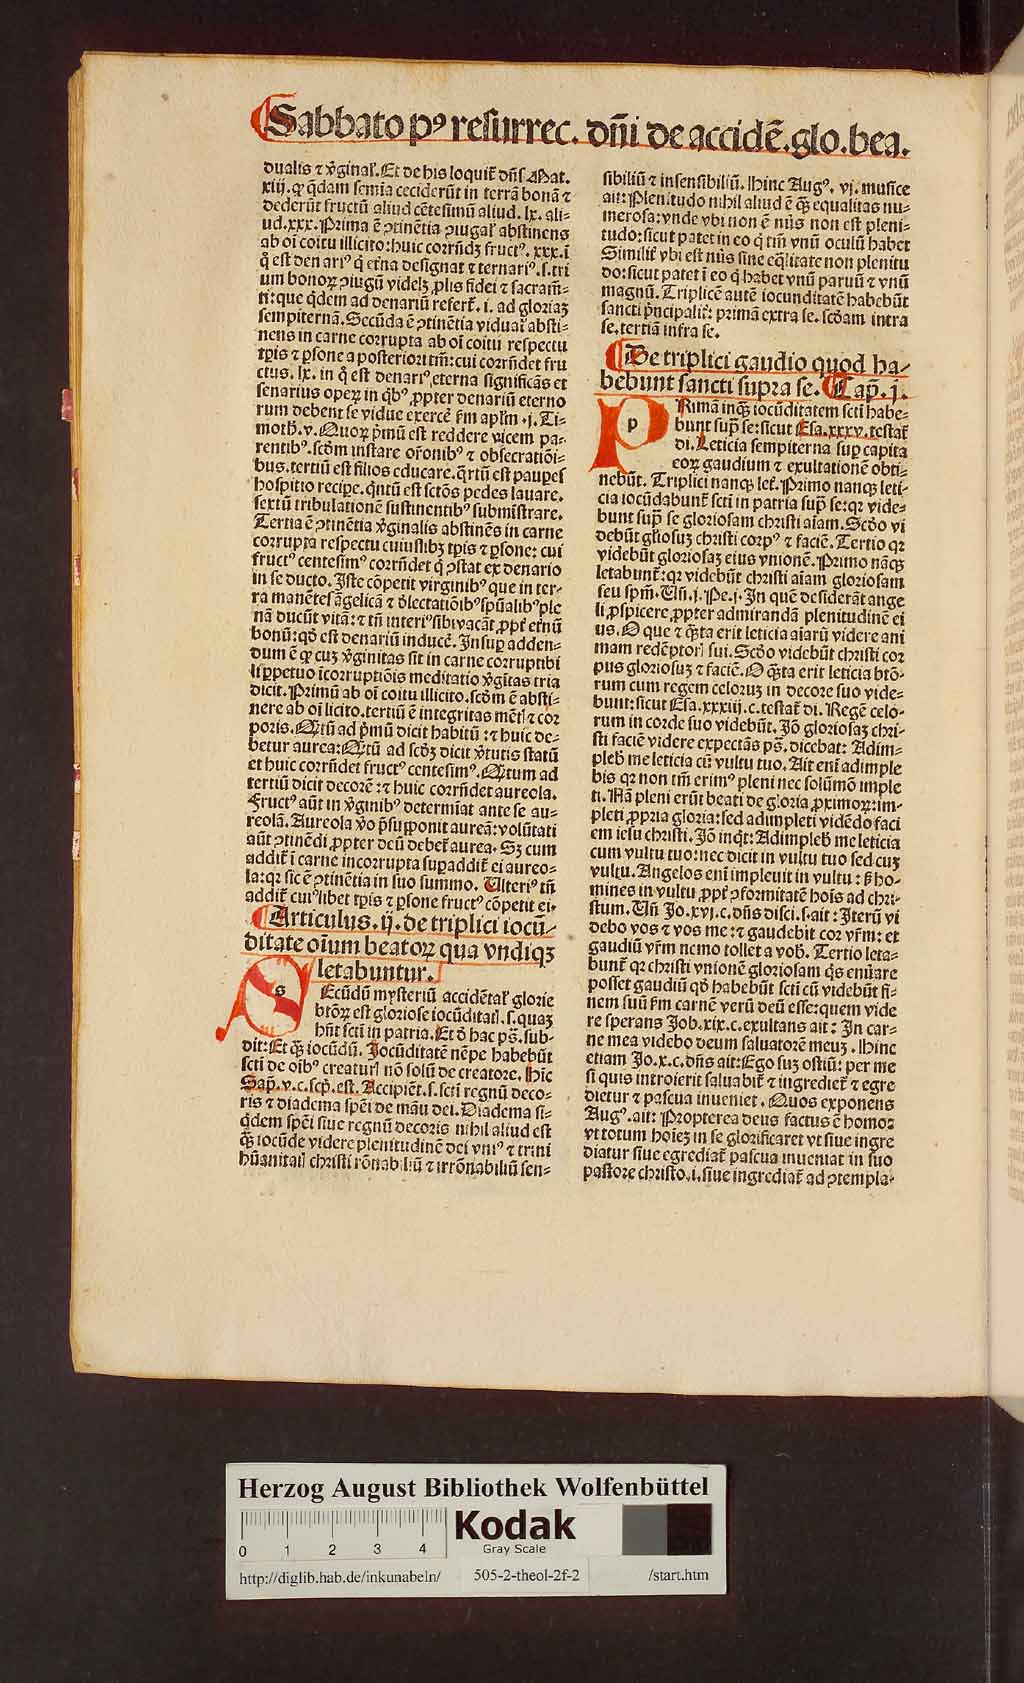 Sabbato pꝰ resurrec. dñi de accidẽ. glo. bea.
dualis ⁊ v̾ginal᷑. Et de his loquit᷑ dñs Mat.
xiij. ꝙ q̃dam semĩa ceciderũt in terrã bonã ⁊
dederũt fructũ aliud cẽtesimũ aliud. lx. ali-
ud. xxx. Prima ẽ ꝯtinẽtia ꝯiugal᷑ abstinens
ab oĩ coitu illicito: huic corrñdꝫ fructꝰ. xxx. ĩ
q̊ est denariꝰ q̊ etẽna designat ⁊ ternariꝰ. s. tri
um bonoꝝ ꝯiugũ videlꝫ ꝓlis fidei ⁊ sacram̃-
ti: que q̃dem ad denariũ refert᷑. i. ad gloriaꝫ
sempiternã. Secũda ẽ ꝯtinẽtia vidual᷑ absti-
nens in carne corrupta ab oĩ coitu respectu
tꝑis ⁊ ꝑsone a posteriori tm̃: cui corrñdet fru
ctus. lx. in q̊ est denariꝰ eterna significãs et
senarius opeꝝ in q̃bꝰ ꝓpter denariũ eterno
rum debent se vidue exercẽ fm apl̃m .j. Ti-
moth̃. v. Quoꝝ p̃mũ est reddere vicem pa-
rentibꝰ. scd̃m instare or̃onibꝰ ⁊ obsecratiõi-
bus. tertiũ est filios educare. q̃rtũ est pauꝑes
hospitio reciꝑe. q̃ntũ est sctõs pedes lauare.
sextũ tribulationẽ sustinentibꝰ submĩstrare.
Tertia ẽ ꝯtinẽtia v̾ginalis abstinẽs in carne
corrupta respectu cuiuslibꝫ tꝑis ⁊ ꝑsone: cui
fructꝰ centesimꝰ corrñdet q̊ ꝯstat ex denario
in se ducto. Iste cõpetit virginibꝰ que in ter-
ra manẽtes ãgelicã ⁊ d̾lectatiõibꝰ sp̃ualibꝰ ple
nã ducũt vitã: ⁊ tñ interiꝰ sibi vacãt ꝓpt᷑ etnũ
bonũ: qd̾ est denariũ inducẽ. Insuꝑ adden-
dum ẽ ꝙ cuꝫ v̾ginitas sit in carne corruptibi
li ꝑpetuo ĩcorruptiõis meditatio v̾gĩtas tria
dicit. Primũ ab oĩ coitu illicito. scd̃m ẽ absti-
nere ab oĩ licito. tertiũ ẽ integritas mẽtꝭ ⁊ cor
poris. Q̃tũ ad p̃mũ dicit habitũ: ⁊ huic de-
betur aurea: Q̃tũ ad scd̃ꝫ dicit v̾tutis statũ
et huic corrñdet fructꝰ centesimꝰ. Q̃tum ad
tertiũ dicit decorẽ: ⁊ huic corrñdet aureola.
Fructꝰ aũt in v̾ginibꝰ determĩat ante se au-
reolã. Aureola v̾o p̃supponit aureã: volũtati
aũt ꝯtinẽdi ꝓpter deũ debet᷑ aurea. Sꝫ cum
addit᷑ ĩ carne incorrupta suꝑaddit᷑ ei aureo-
la: qꝛ sic ẽ ꝯtinẽtia in suo summo. Ulteriꝰ tñ
addit᷑ cuiꝰlibet tꝑis ⁊ ꝑsone fructꝰ cõpetit ei.
Articulus. ij. de triplici iocũ-
ditate oĩum beatoꝝ qua vndiqꝫ
letabuntur.
s
Ecũdũ mysteriũ accidẽtal᷑ glorie
btõꝝ est gloriose iocũditatꝭ. s. quaꝫ
hñt scti in patria. Et d̾ hac ps̃. sub-
dit: Et q̃ꝫ iocũdũ. Iocũditatẽ nẽpe habebũt
scti de oĩbꝰ creaturꝭ nõ solũ de creatore. Hĩc
Sap̃. v. c. scp̃. est. Accipiẽt. s. scti regnũ deco-
ris ⁊ diadema spẽi de mãu dei. Diadema si-
q̃dem spẽi siue regnũ decoris nihil aliud est
q̃ꝫ iocũde videre plenitudinẽ dei vniꝰ ⁊ trini
hũanitatꝭ christi rõnabiliũ ⁊ irrõnabiliũ sen-
sibiliũ ⁊ insensibiliũ. Hinc Augꝰ. vj. musice
ait: Plenitudo nihil aliud ẽ q̃ꝫ equalitas nu-
merosa: vnde vbi non ẽ nũs non est pleni-
tudo: sicut patet in eo q̊ tm̃ vnũ oculũ habet
Similit᷑ vbi est nũs sine eq̃litate non plenitu
do: sicut patet ĩ eo q̊ habet vnũ paruũ ⁊ vnũ
magnũ. Triplicẽ autẽ iocunditatẽ habebũt
sancti p̃ncipalit᷑: primã extra se. scd̃am intra
se. tertiã infra se.
De triplici gaudio quod ha-
bebunt sancti supra se. Cap̃. j.
p
Rimã inqꝫ iocũditatem scti habe-
bunt sup̃ se: sicut Esa. xxxv. testat᷑
di. Leticia sempiterna suꝑ capita
eoꝝ gaudium ⁊ exultationẽ obti-
nebũt. Triplici nanqꝫ let᷑. Primo nanqꝫ leti-
cia iocũdabunt᷑ scti in patria sup̃ se: qꝛ vide-
bunt sup̃ se gloriosam christi aĩam. Scd̾o vi
debũt gl̃iosuꝫ christi corpꝰ ⁊ faciẽ. Tertio qꝛ
videbũt gloriosaꝫ eius vnionẽ. Primo nãqꝫ
letabunt᷑: qꝛ videbũt christi aĩam gloriosam
seu spm̃. Uñ. j. Pe. j. In quẽ desiderãt ange
li ꝓspicere ꝓpter admirandã plenitudinẽ ei
us. O que ⁊ q̃ꝫta erit leticia aĩarũ videre ani
mam redẽptorꝭ sui. Scd̾o videbũt christi cor
pus gloriosuꝫ ⁊ faciẽ. O q̃ꝫta erit leticia btõ-
rum cum regem celoruꝫ in decore suo vide-
bunt: sicut Esa. xxxiij. c. testat᷑ di. Regẽ celo-
rum in corde suo videbũt. Iõ gloriosaꝫ chri-
sti faciẽ videre expectãs ps̃. dicebat: Adim-
pleb̾ me leticia cũ vultu tuo. Ait enĩ adimple
bis qꝛ non tm̃ erimꝰ pleni nec solũmõ imple
ti. Nã pleni erũt beati de gloria ꝓximoꝝ: im-
pleti ꝓpria gloria: sed adimpleti vidẽdo faci
em iesu christi. Iõ inq̃t: Adimpleb̾ me leticia
cum vultu tuo: nec dicit in vultu tuo sed cuꝫ
vultu. Angelos enĩ impleuit in vultu: s̾ ho-
mines in vultu ꝓpt᷑ ꝯformitatẽ hoĩs ad chri-
stum. Uñ Io. xvj. c. dñs disci. s. ait: Iterũ vi
debo vos ⁊ vos me: ⁊ gaudebit cor vr̃m: et
gaudiũ vr̃m nemo tollet a vob̾. Tertio leta-
bunt᷑ qꝛ christi vnionẽ gloriosam q̃s enarrare
posset gaudiũ qd̾ habebũt scti cũ videbũt fi-
nem suũ fm carnẽ verũ deũ esse: quem vide
re sperans Job. xix. c. exultans ait: In car-
ne mea videbo deum saluatorẽ meuꝫ. Hinc
etiam Jo. x. c. dñs ait: Ego suꝫ ostiũ: per me
si quis introierit saluabit᷑ ⁊ ingrediet᷑ ⁊ egre
dietur ⁊ pascua inueniet. Quos exponens
Augꝰ. ait: Propterea deus factus ẽ homo:
vt totum hoĩeꝫ in se glorificaret vt siue ingre
diatur siue egrediat᷑ pascua inueniat in suo
pastore christo. i. siue ingrediat᷑ ad ꝯtempla-
Herzog August Bibliothek Wolfenbüttel
0 1 2 3 4
Kodak
Gray Scale
http://diglib.hab.de/inkunabeln/ 505-2-theol-2f-2 /start.htm